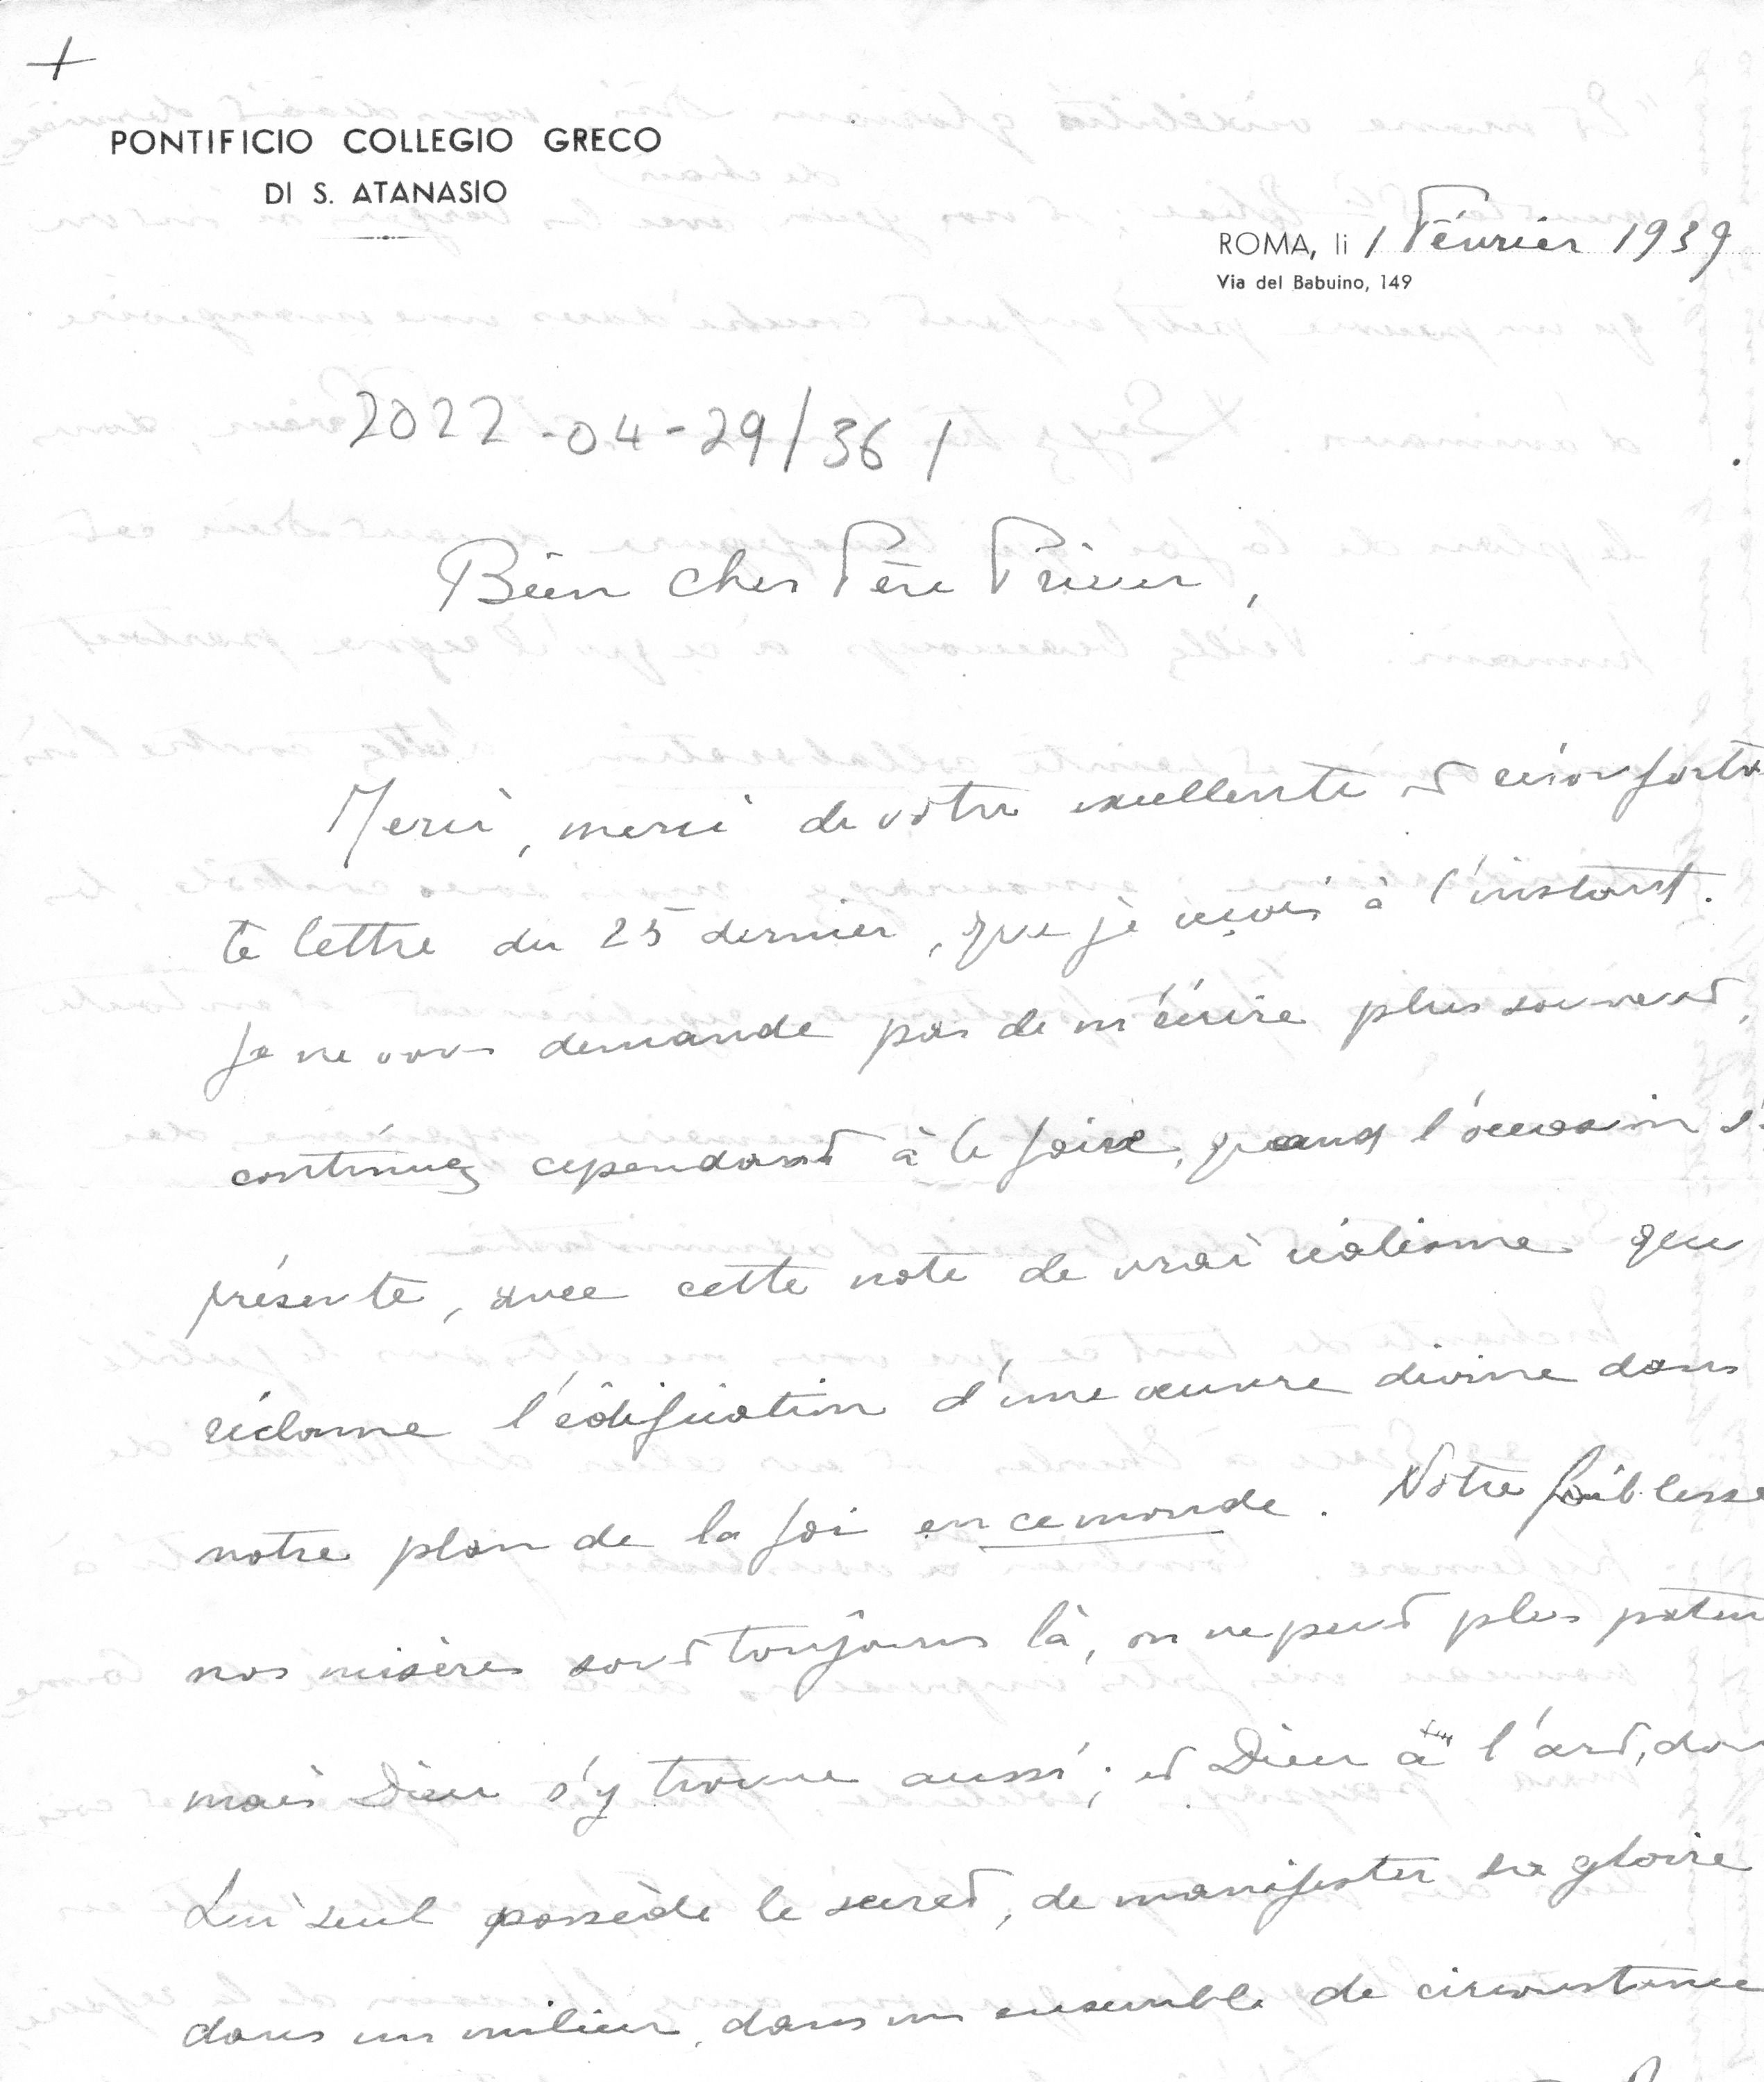 +
PONTIFICIO COLLEGIO GRECO
DI S. ATANASIO
ROMA, li 1 Février 1939
Via del Babuino, 149
2022-04-29/36 1
Bien cher Père Prieur,
Merci, merci de votre excellente et réconforta
te lettre du 25 dernier, que je reçois à l'instant.
Je ne vous demande pas de m'écrire plus souvent,
continuez cependant à le faire, quand l'occasion s'
présente, avec cette note de vrai réalisme que
réclame l'édification d'une œuvre divine dans
notre plan de la foi en ce monde. Notre faiblesse
nos misères sont toujours là, on ne peut plus paten
mais Dieu s'y trouve aussi; et Dieu a l'art, don
Lui seul possède le secret, de manifester sa gloire
dans un milieu, dans un ensemble de circonstance